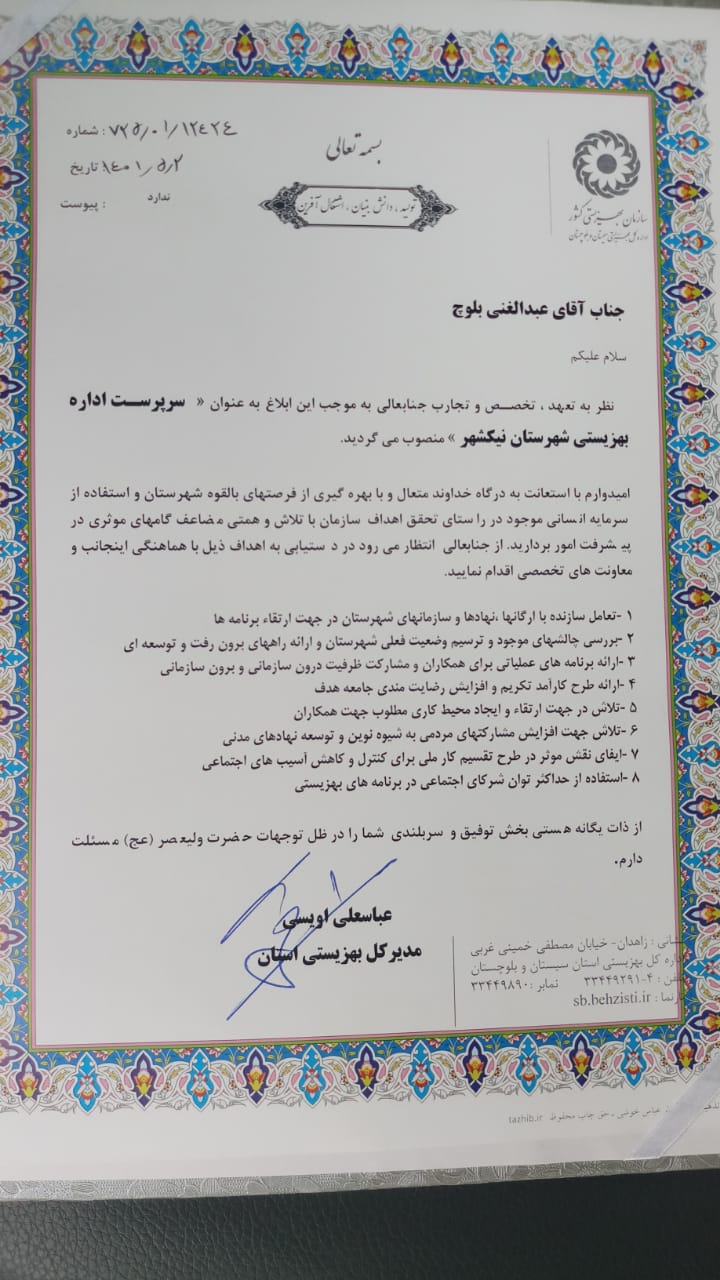 بسمه تعالی
تولید ، دانش بنیان ، اشتغال آفرین
شماره : ۷۲۵/۰۱/۱۲۴۲۴
تاریخ ۱۴۰۱/۵/۲
پیوست : ندارد
سازمان بهزیستی کشور
اداره کل بهزیستی سیستان و بلوچستان
جناب آقای عبدالغنی بلوچ
سلام علیکم
نظر به تعهد ، تخصص و تجارب جنابعالی به موجب این ابلاغ به عنوان « سرپرست اداره
بهزیستی شهرستان نیکشهر » منصوب می گردید.
امیدوارم با استعانت به درگاه خداوند متعال و با بهره گیری از فرصتهای بالقوه شهرستان و استفاده از
سرمایه انسانی موجود در راستای تحقق اهداف سازمان با تلاش و همتی مضاعف گامهای موثری در
پیشرفت امور بردارید. از جنابعالی انتظار می رود در دستیابی به اهداف ذیل با هماهنگی اینجانب و
معاونت های تخصصی اقدام نمایید.
۱ -تعامل سازنده با ارگانها ،نهادها و سازمانهای شهرستان در جهت ارتقاء برنامه ها
۲ -بررسی چالشهای موجود و ترسیم وضعیت فعلی شهرستان و ارائه راههای برون رفت و توسعه ای
۳ -ارائه برنامه های عملیاتی برای همکاران و مشارکت ظرفیت درون سازمانی و برون سازمانی
۴ -ارائه طرح کارآمد تکریم و افزایش رضایت مندی جامعه هدف
۵ -تلاش در جهت ارتقاء و ایجاد محیط کاری مطلوب جهت همکاران
۶ -تلاش جهت افزایش مشارکتهای مردمی به شیوه نوین و توسعه نهادهای مدنی
۷ -ایفای نقش موثر در طرح تقسیم کار ملی برای کنترل و کاهش آسیب های اجتماعی
۸ -استفاده از حداکثر توان شرکای اجتماعی در برنامه های بهزیستی
از ذات یگانه هستی بخش توفیق و سربلندی شما را در ظل توجهات حضرت ولیعصر (عج) مسئلت
دارم.
عباسعلی اویسی
مدیرکل بهزیستی استان
نشانی : زاهدان- خیابان مصطفی خمینی غربی
اداره کل بهزیستی استان سیستان و بلوچستان
تلفن : ۴-۳۳۴۴۹۲۹۱ نمابر : ۳۳۴۴۹۸۹۰
تارنما : sb.behzisti.ir
عباس خوشی ـ حق چاپ محفوظ tazhib.ir